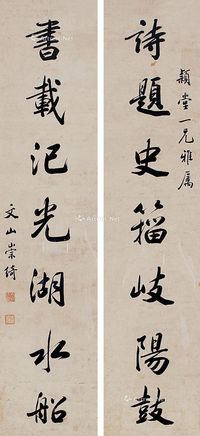 穎堂一兄雅属
詩題史籀岐陽鼓
書載汜光湖水船
文山崇綺